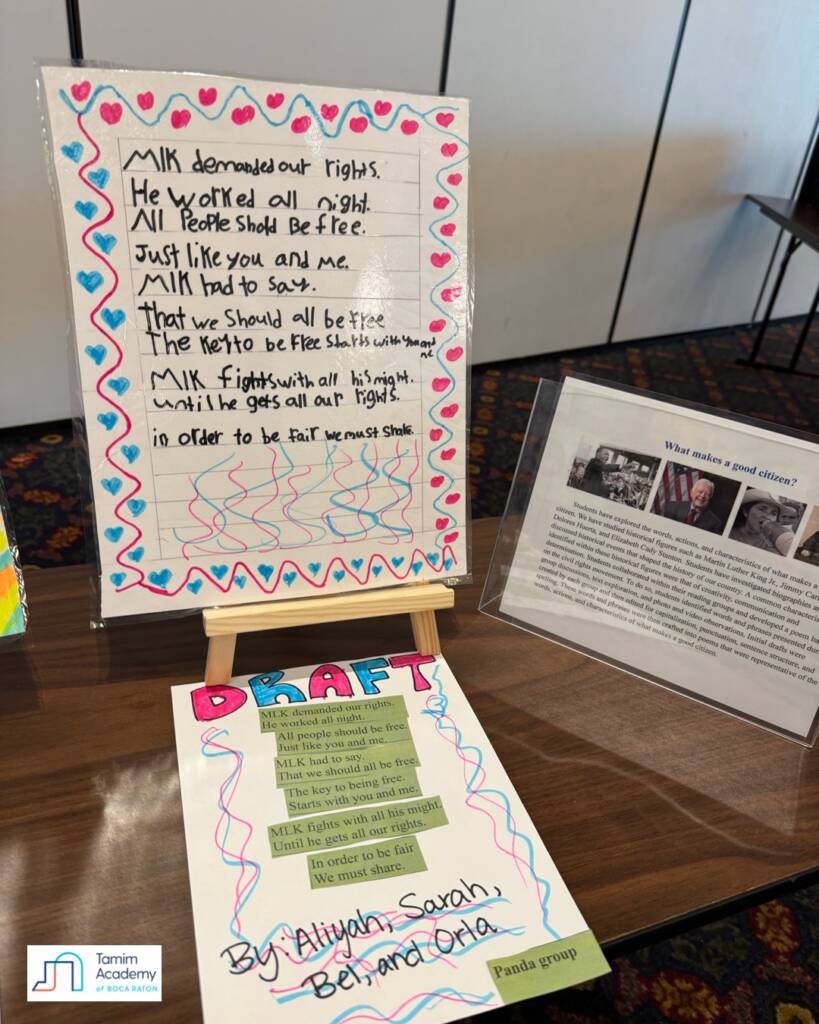 MlK demanded our rights.
He worked all night.
All People Shold Be free.
Just like you and me.
MlK had to say.
That we Should all be free
The Key to be Free Starts with You and
me
MlK fights with all his might.
until he gets all our rights.
in order to be fair we must Share.
What makes a good citizen?
Students have explored the words, actions, and characteristics of what makes a
citizen. We have studied historical figures such as Martin Luther King Jr., Jimmy Car
Dolores Huerta, and Elizabeth Cady Stanton. Students have investigated biographies a
discussed historical events that shaped the history of our country. A common characteri
identified within these historical figures were that of creativity, communication and
determination. Students collaborated within their reading groups and developed a poem ba
on the civil rights movement. To do so, students identified words and phrases presented dur
group discussions, text exploration, and photo and video observations. Initial drafts were
edited by each group and then edited for capitalization, punctuation, sentence structure, and
spelling. These words and phrases were then crafted into poems that were representative of the
words, actions, and characteristics of what makes a good citizen.
DRAFT
MLK demanded our rights.
He worked all night.
All people should be free.
Just like you and me.
MLK had to say.
That we should all be free.
The key to being free.
Starts with you and me.
MLK fights with all his might.
Until he gets all our rights.
In order to be fair
We must share.
By: Aliyah, Sarah,
Bel, and Orla
Panda group
Tamim
Academy
of BOCA RATON